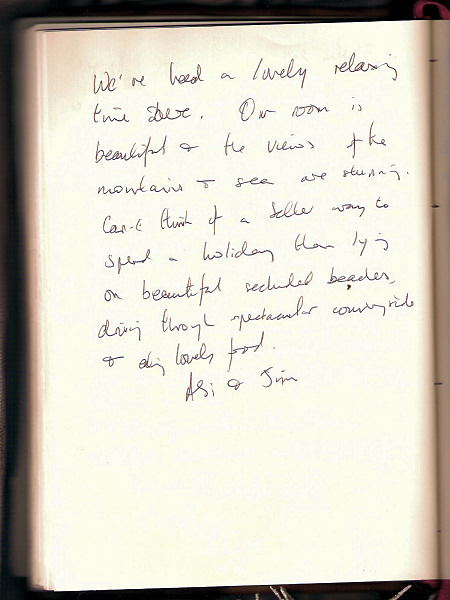 We've had a lovely relaxing
time here. Our room is
beautiful & the views of the
mountains & sea are stunning.
Can't think of a better way to
spend a holiday than lying
on beautiful secluded beaches,
driving through spectacular countryside
& eating lovely food.
& Jim